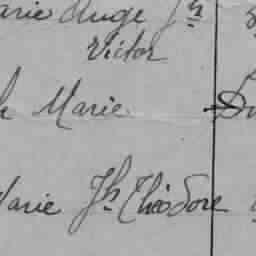 Marie Ange Jh
Victor
Marie
Marie Jh Théodore